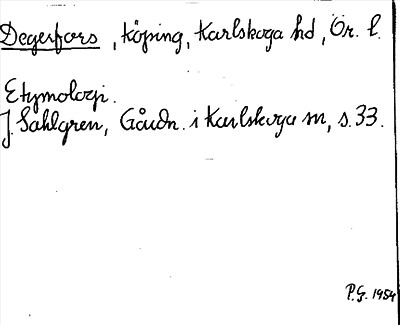 Degerfors, köping, Karlskoga hd, Ör. l.
Etymologi.
J. Sahlgren, Gårdn. i Karlskoga sn, s. 33.
P.G. 1954